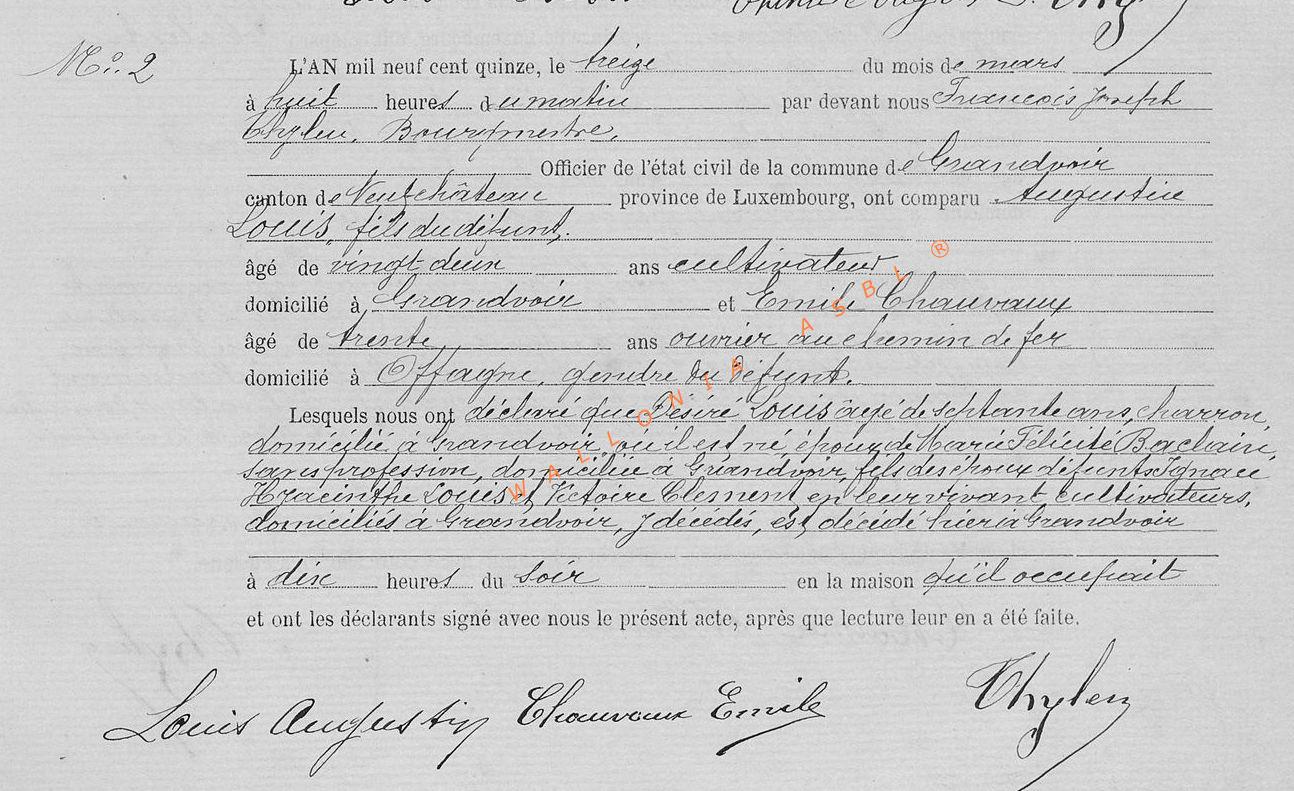 N°. 2
L'AN mil neuf cent quinze, le treize du mois de mars
à huit heures du matin par devant nous François Joseph
Thylen, Bourgmestre,
Officier de l'état civil de la commune de Grandvoir
canton de Neufchâteau province de Luxembourg, ont comparu Augustin
Louis, fils du défunt,
âgé de vingt deux ans cultivateur
domicilié à Grandvoir et Emile Chauvaux
âgé de trente ans ouvrier au chemin de fer
domicilié à Offagne, gendre du défunt.
Lesquels nous ont déclaré que Désiré Louis âgé de septante ans, charron,
domicilié à Grandvoir, où il est né, époux de Marie Félicité Baclain,
sans profession, domiciliée à Grandvoir, fils des époux défunts Ignace
Hyacinthe Louis et Victoire Clement en leur vivant cultivateurs,
domiciliés à Grandvoir, y décédés, est décédé hier à Grandvoir
à dix heures du soir en la maison qu'il occupait
et ont les déclarants signé avec nous le présent acte, après que lecture leur en a été faite.
Louis Augustin Chauvaux Emile Thylen
WALLONIA ASBL ®